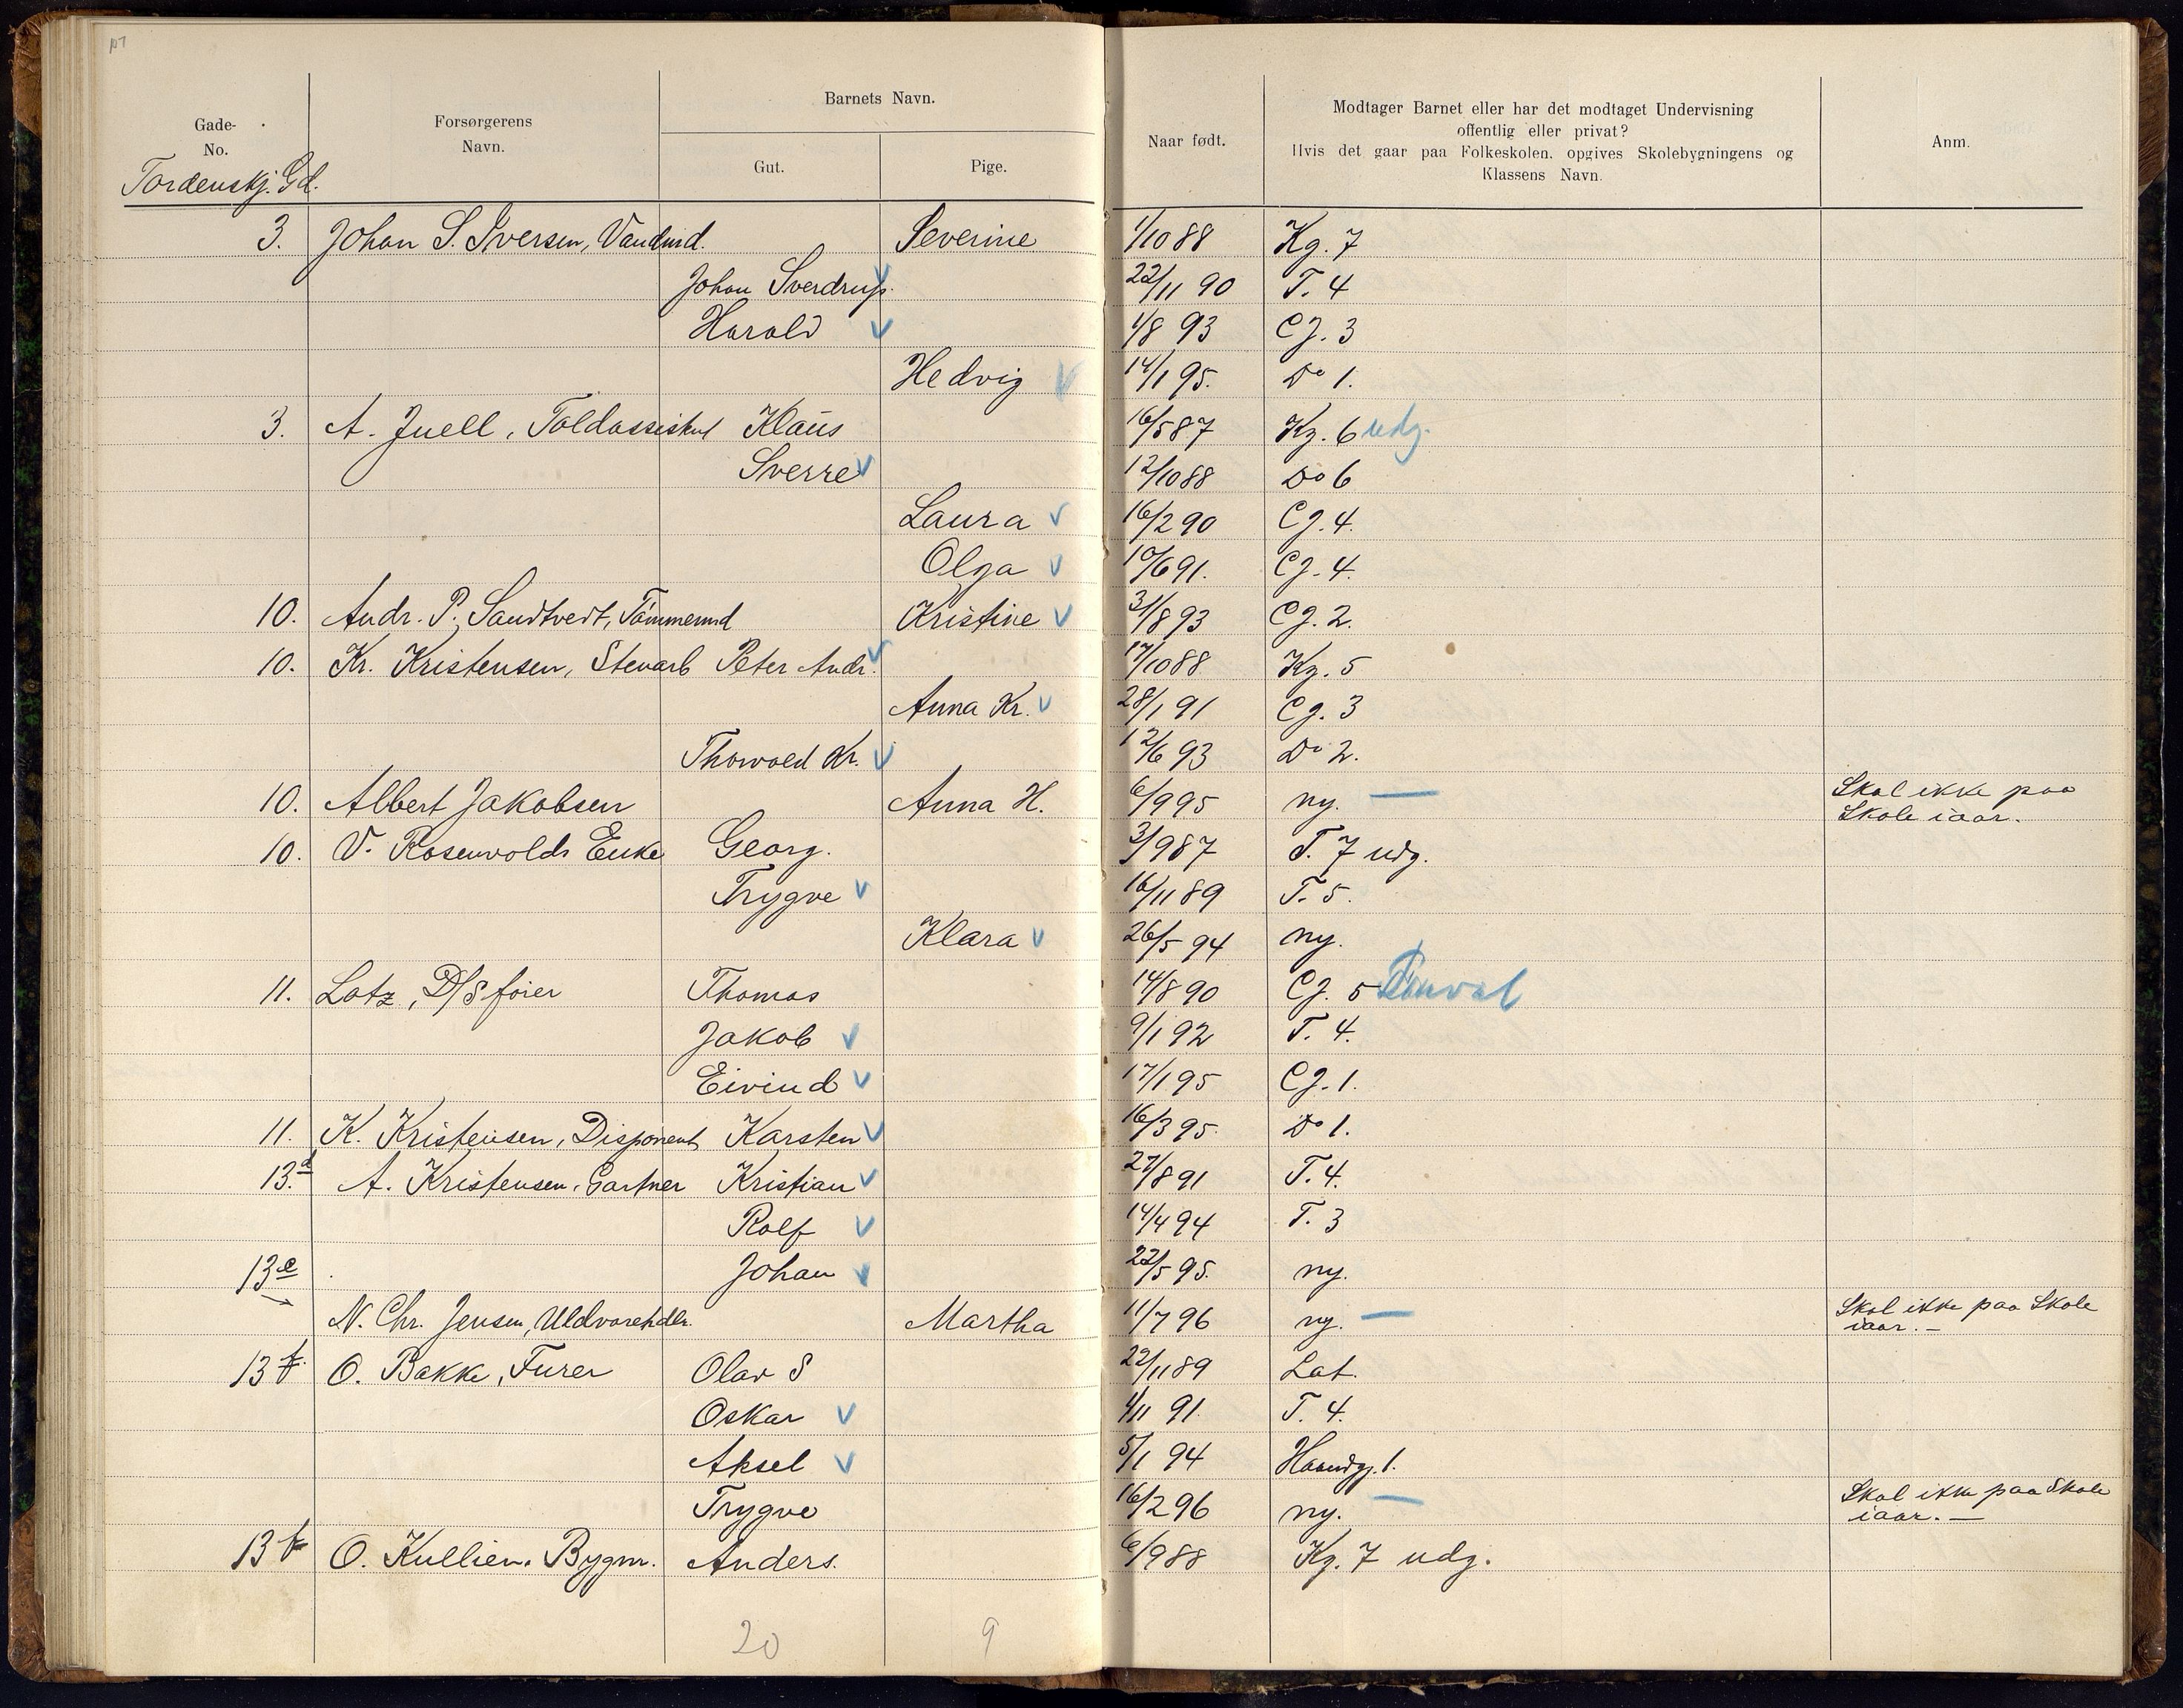 Gade-
No.
Forsørgerens
Navn.
Barnets Navn.
Gut.
Pige.
Naar født.
Modtager Barnet eller har det modtaget Undervisning
offentlig eller privat?
Hvis det gaar paa Folkeskolen, opgives Skolebygningens og
Klassens Navn.
Anm.
Tordenskj. Gd.
3. Johan S. Iversen, Vandmd. Severine 1/10 88 Kg. 7
Johan Sverdrup. 22/11 90 T. 4
Harald 1/8 93 CJ. 3
Hedvig 14/1 95. Do 1.
3. A. Juell, Toldassistent Klaus 16/5 87 Kg. 6 udg.
Sverre 12/10 88 Do 6
Laura 16/2 90 CJ. 4.
Olga 10/6 91. CJ. 4.
10. Andr. P. Sandtvedt, Tømmermd Kristine 31/8 93 CJ. 2.
10. Kr. Kristensen, Stevarb Peter Andr. 17/10 88 Kg. 5
Anna Kr. 28/1 91 CJ. 3
Thorvald Kr. 12/6 93 Do 2.
10. Albert Jakobsen Anna H. 6/9 95 ny. — Skal ikke paa
Skole iaar.
10. V. Rosenvolds Enke Georg. 3/9 87 T. 7 udg.
Trygve 16/11 89 T. 5.
Klara 26/5 94 ny.
11. Lotz, D/S fører Thomas 14/8 90 CJ. 5
Jakob 9/1 92 T. 4.
Eivind 17/1 95 CJ. 1.
11. K. Kristensen, Disponent Karsten 16/3 95. Do 1.
13. A. Kristensen, Gartner Kristian 27/8 91 T. 4.
Rolf 14/4 94 T. 3
13e Johan 22/5 95. ny.
N. Chr. Jensen, Uldvarehdlr. Martha 11/7 96 ny. — Skal ikke paa Skole
iaar. —
13f. O. Bakke, Furer Olav S 22/11 89 Lat.
Oskar 1/11 91. T. 4.
Aksel 5/1 94 Haandgj. 1.
Trygve 16/2 96 ny. — Skal ikke paa Skole
iaar. —
13f O. Kullien, Bygm. Anders. 6/9 88 Kg. 7 udg.
20 9